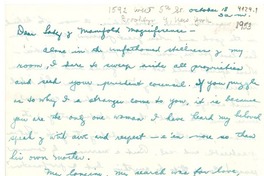 1892 West 5th St. October 18
Brooklyn, New York
Dear Lady of Manifold Magnificence —
Alone in the unfathomed stillness of my
room, I dare to sweep aside all proprieties
and seek your prudent council. If you puzzle
as to why I a stranger come to you, it is because
you are the only one woman I have heard my beloved
speak of with awe and respect — a'in more so than
his own mother.
Me
my search was for love,